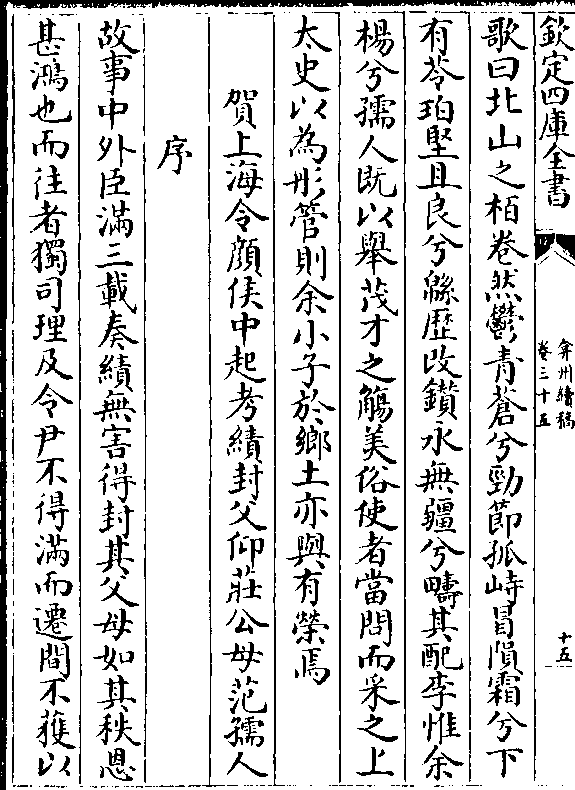 欽定四庫全書
弇州續稿
卷三十五
十五
歌曰北山之栢卷然鬱青蒼兮勁節孤峙冒隕霜兮下
有苓珀堅且良兮緜歷改鑽永無疆兮疇其配李惟余
楊兮孺人既以舉茂才之觴美俗使者當問而采之上
太史以為彤管則余小子於鄉土亦與有榮焉
賀上海令顔侯中起考績封父仰莊公母范孺人
序
故事中外臣滿三載奏績無害得封其父母如其秩恩
甚鴻也而往者獨司理及令尹不得滿而遷間不獲以